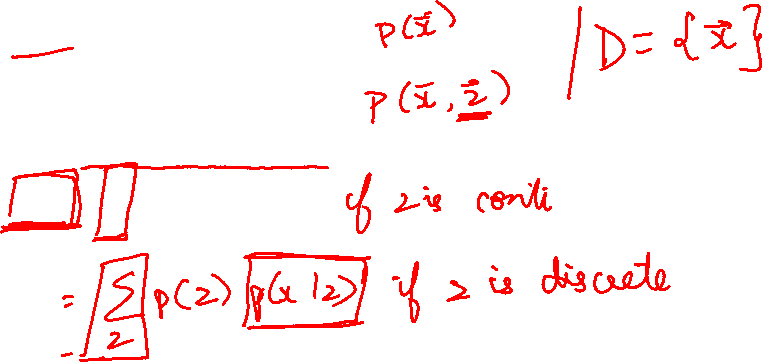 p(x⃗)
D = {x⃗}
p(x⃗, z⃗)
if z is conti
= Σ_z p(z) p(x|z) if z is discrete